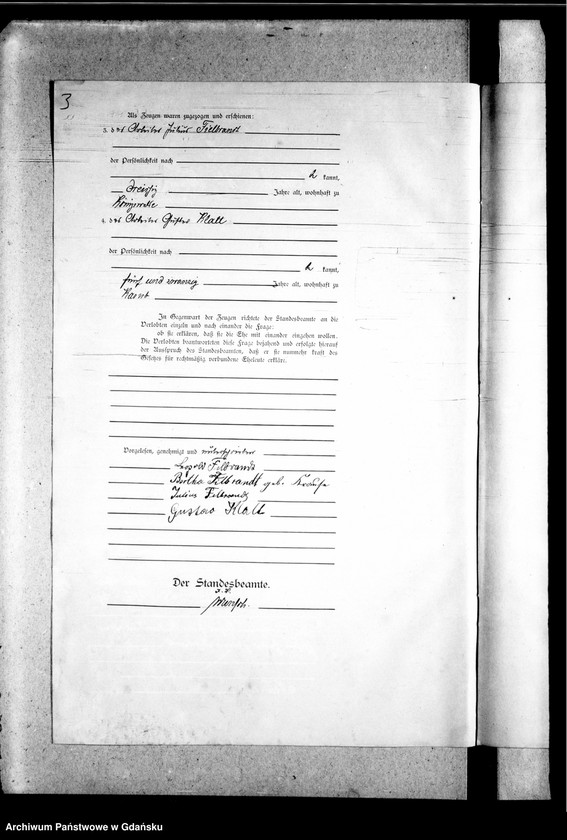 3
Als Zeugen waren zugezogen und erschienen:
3. der Arbeiter Julius Fielbrandt
der Persönlichkeit nach
kannt,
dreißig Jahre alt, wohnhaft zu
4. der Arbeiter Gustav Klatt
der Persönlichkeit nach
kannt,
fünf und zwanzig Jahre alt, wohnhaft zu
In Gegenwart der Zeugen richtete der Standesbeamte an die
Verlobten einzeln und nach einander die Frage:
ob sie erklären, daß sie die Ehe mit einander eingehen wollen.
Die Verlobten beantworteten diese Frage bejahend und erfolgte hierauf
der Ausspruch des Standesbeamten, daß er sie nunmehr kraft des
Gesetzes für rechtmäßig verbundene Eheleute erkläre.
Vorgelesen, genehmigt und unterschrieben
Leopold Filbrandt
Bertha Filbrandt geb. Krause
Julius Filbrandt
Gustav Klatt
Der Standesbeamte.
Archiwum Państwowe w Gdańsku